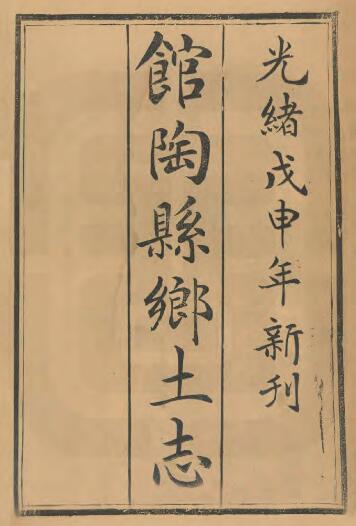 光緒戊申年新刊
館陶縣鄉土志